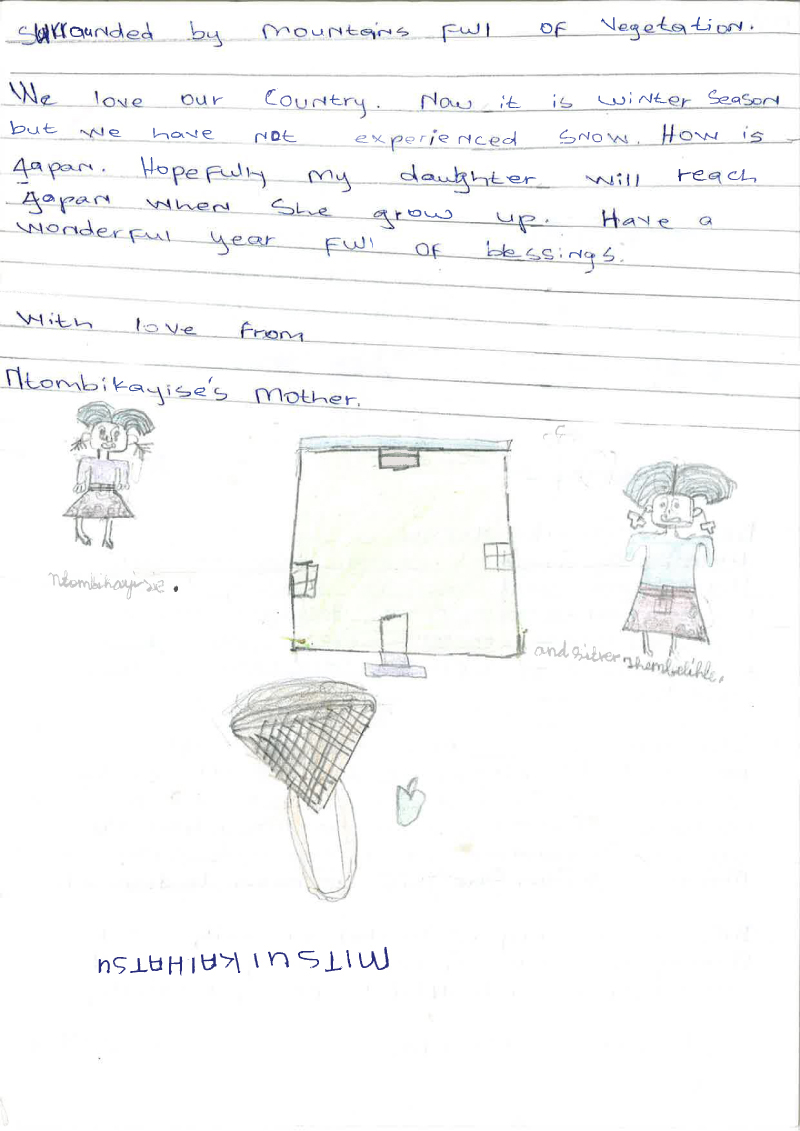 surrounded by mountains full of Vegetation.
We love our Country. Now it is winter Season
but we have not experienced snow. How is
Japan. Hopefully my daughter will reach
Japan when She grow up. Have a
wonderful year full of blessings.
With love from
Ntombikayise's Mother.
Ntombikayisie.
and sitver Thembelihle.
MITSUIKAIHATSU